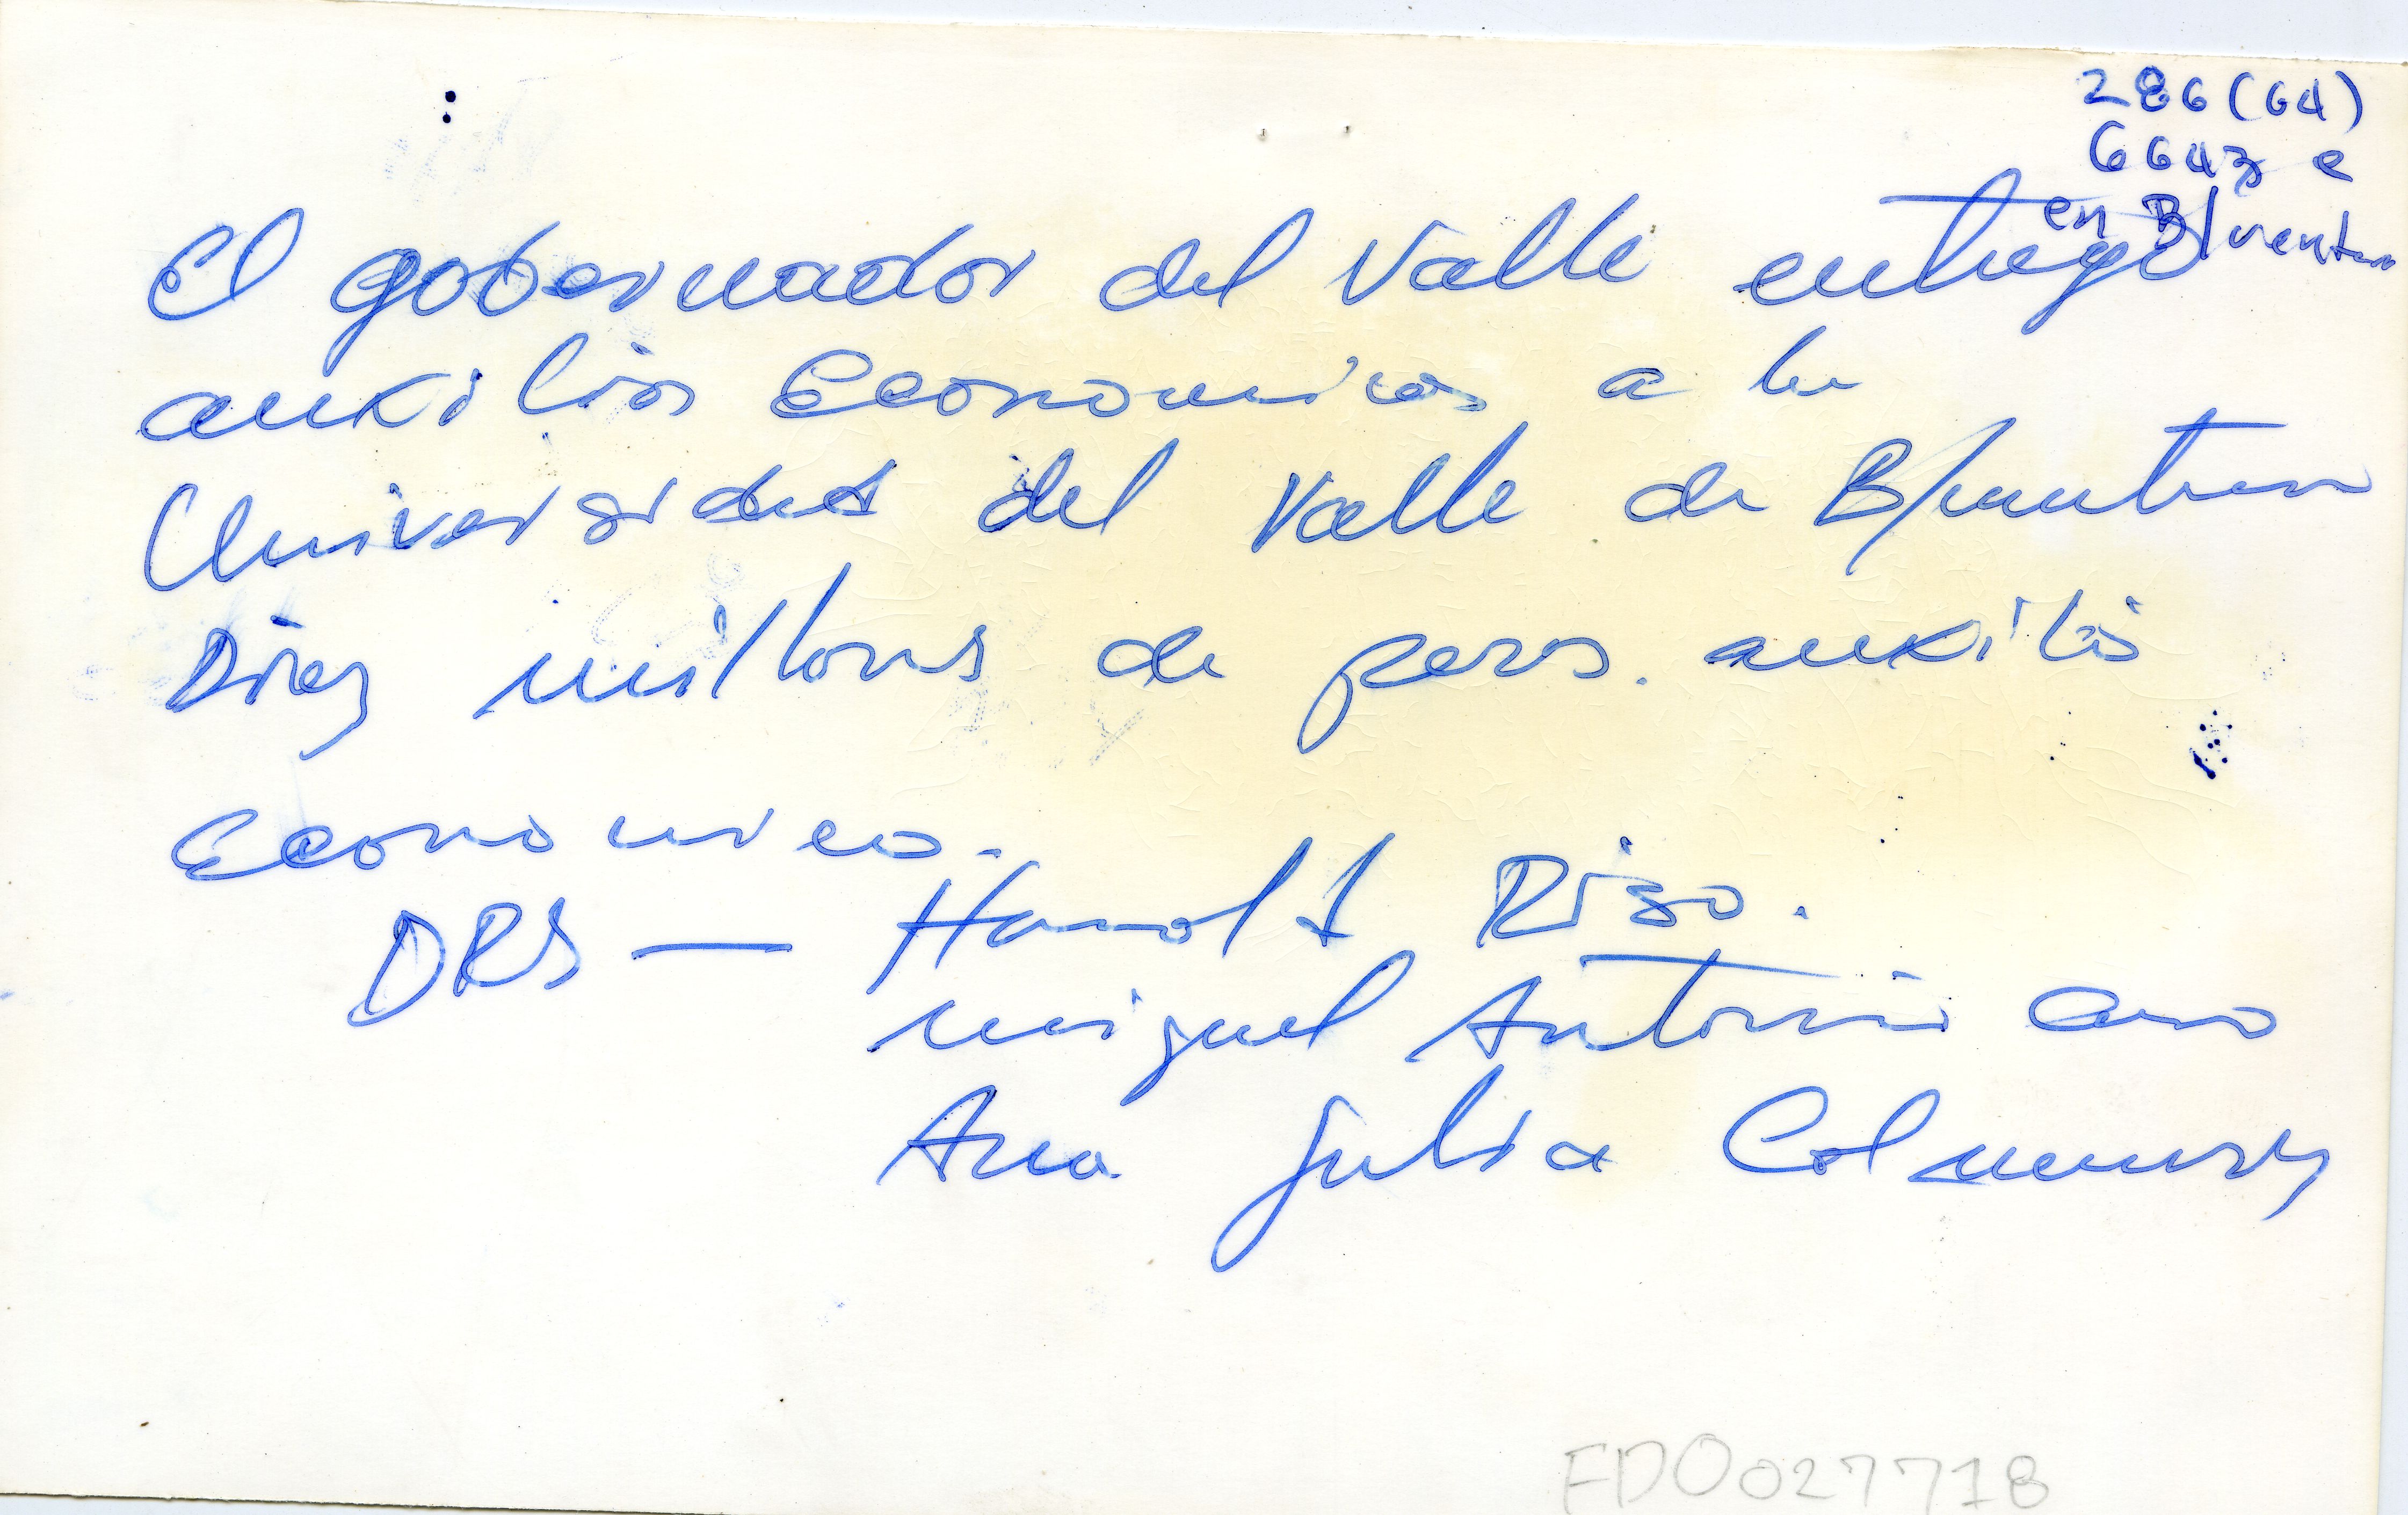 286(64)
6643 e
en B/ventura
El gobernador del Valle entrego
auxilios Economicos a la
Universidad del Valle de B/ventura
Diez millones de pesos. auxilio
Economico.
DRS — Harold Rizo.
Miguel Antonio
Ana Julia Colmenares
FDO027718